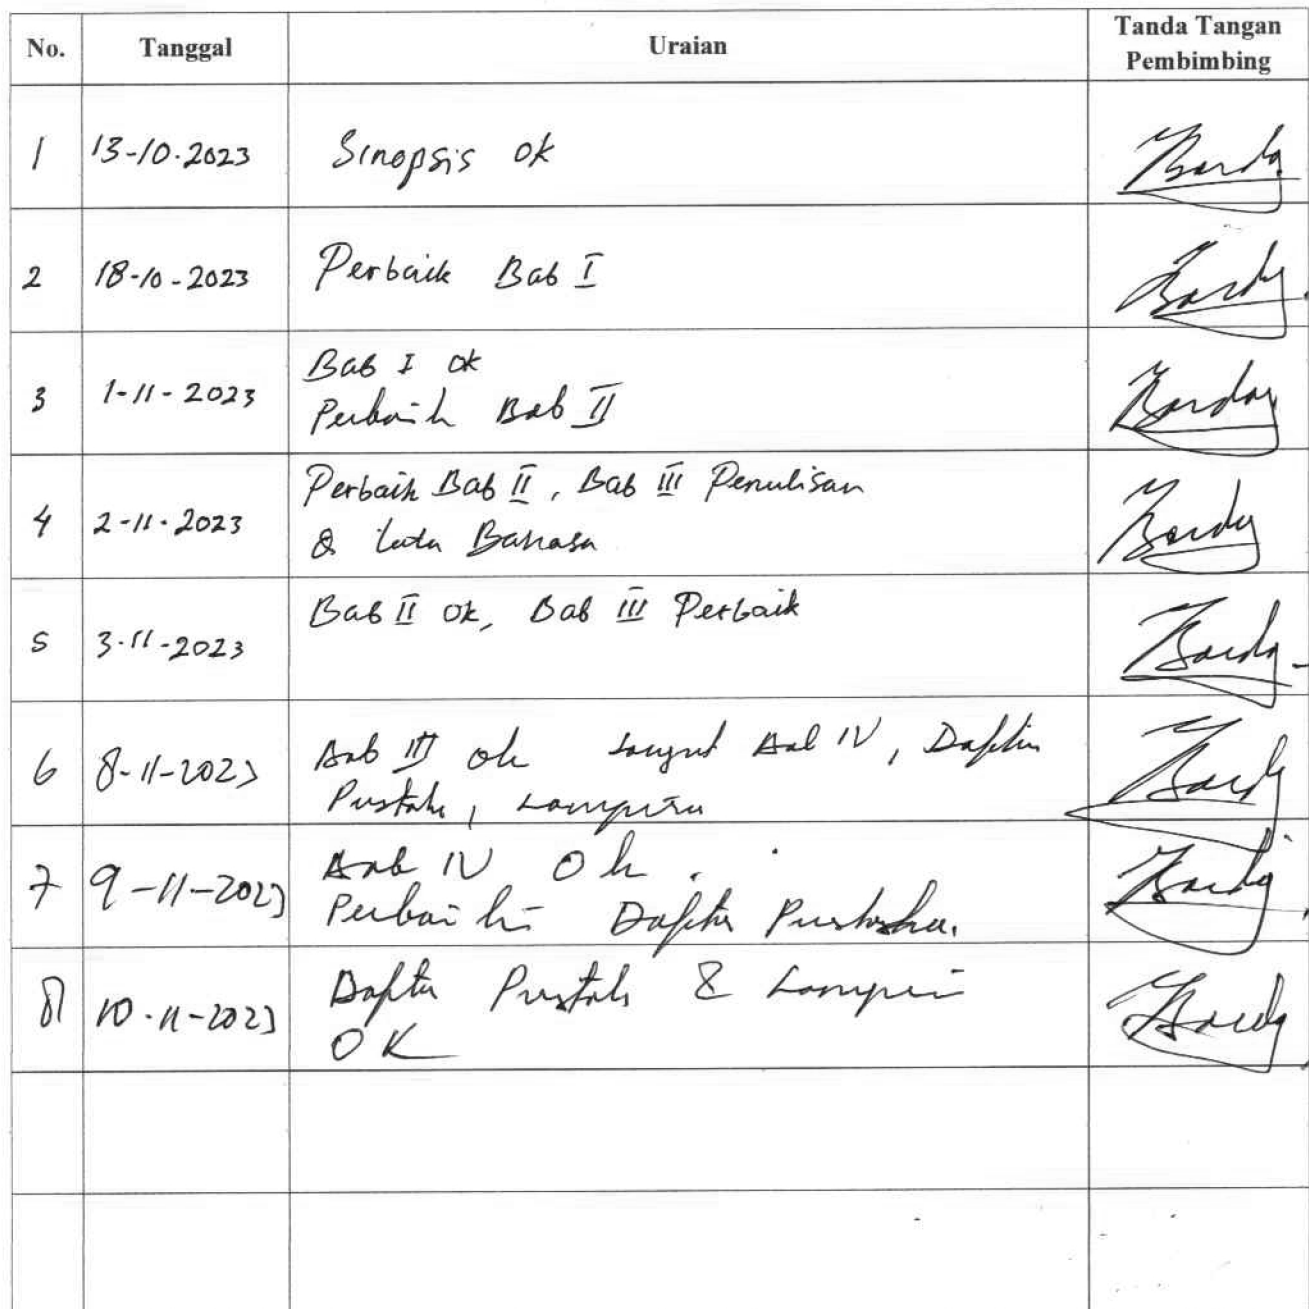 No. Tanggal Uraian Tanda Tangan
Pembimbing
1 13-10-2023 Sinopsis ok
2 18-10-2023 Perbaik Bab I
3 1-11-2023 Bab I ok
Perbaik Bab II
4 2-11-2023 Perbaik Bab II, Bab III Penulisan
& tata Bahasa
5 3-11-2023 Bab II ok, Bab III Perbaik
6 8-11-2023 Bab III ok Bab IV, Daftar
Pustaka, Lampiran
7 9-11-2023 Bab IV Ok.
Perbaiki Daftar Pustaka.
8 10-11-2023 Daftar Pustaka & Lampiran
OK